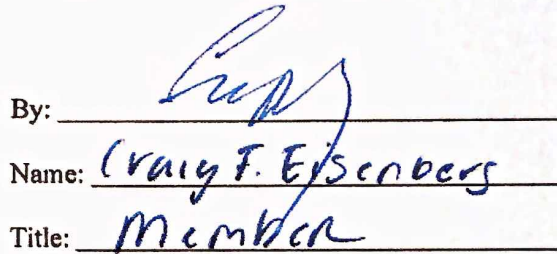 By:
Name: Craig F. Eisenberg
Title: Member